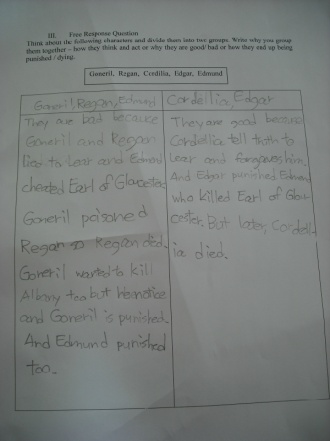 III. Free Response Question
Think about the following characters and divide them into two groups. Write why you group
them together – how they think and act or why they are good/ bad or how they end up being
punished / dying.
Goneril, Regan, Cordilia, Edgar, Edmund
Goneril, Regan, Edmund
They are bad because
Goneril and Regan
lied to Lear and Edmund
cheated Earl of Glaucester.
Goneril poisoned
Regan so Regan died.
Goneril wanted to kill
Albany too but he notice
and Goneril is punished.
And Edmund punished
too.
Cordellia, Edgar
They are good because
Cordellia tell truth to
Lear and forgave him.
And Edgar punished Edmund
who killed Earl of Glau-
cester. But later, Cordell-
ia died.